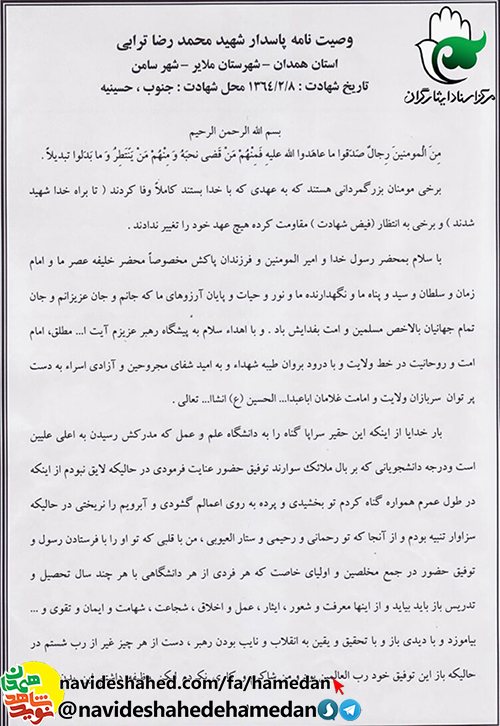 وصیت نامه پاسدار شهید محمد رضا ترابی
استان همدان – شهرستان ملایر – شهر سامن
تاریخ شهادت : ۱۳۶۴/۲/۸ محل شهادت : جنوب ، حسینیه
مرکز اسناد ایثارگران
بسم الله الرحمن الرحیم
مِنَ الْمومنینَ رِجالٌ صَدَقوا ما عاهَدوا الله علیهِ فَمِنْهُمْ مَنْ قَضی نحبَهُ وَ مِنْهُمْ مَنْ یَنْتَظِرُ وَ ما بَدلوا تبدیلاً .
برخی مومنان بزرگمردانی هستند که به عهدی که با خدا بستند کاملاً وفا کردند ( تا براه خدا شهید
شدند ) و برخی به انتظار (فیض شهادت ) مقاومت کرده هیچ عهد خود را تغییر ندادند .
با سلام بمحضر رسول خدا و امیر المومنین و فرزندان پاکش مخصوصاً محضر خلیفه عصر ما و امام
زمان و سلطان و سید و پناه ما و نگهدارنده ما و نور و حیات و پایان آرزوهای ما که جانم و جان عزیزانم و جان
تمام جهانیان بالاخص مسلمین و امت بفدایش باد . و با اهداء سلام به پیشگاه رهبر عزیزم آیت ا... مطلق، امام
امت و روحانیت در خط ولایت و با درود بروان طیبه شهداء و به امید شفای مجروحین و آزادی اسراء به دست
پر توان سربازان ولایت و امامت غلامان اباعبدا... الحسین (ع) انشاا... تعالی .
بار خدایا از اینکه این حقیر سراپا گناه را به دانشگاه علم و عمل که مدرکش رسیدن به اعلی علیین
است ودرجه دانشجویانی که بر بال ملائک سوارند توفیق حضور عنایت فرمودی در حالیکه لایق نبودم از اینکه
در طول عمرم همواره گناه کردم تو بخشیدی و پرده به روی اعمالم گشودی و آبرویم را نریختی در حالیکه
سزاوار تنبیه بودم و از آنجا که تو رحمانی و رحیمی و ستار العیوبی ، من با قلبی که تو او را با فرستادن رسول و
توفیق حضور در جمع مخلصین و اولیای خاصت که هر فردی از هر دانشگاهی با هر چند سال تحصیل و
تدریس باز باید بیاید و از اینها معرفت و شعور ، ایثار ، عمل و اخلاق ، شجاعت ، شهامت و ایمان و تقوی و ...
بیاموزد و با دیدی باز و با تحقیق و یقین به انقلاب و نایب بودن رهبر ، دست از هر چیز غیر از رب شستم در
حالیکه باز این توفیق خود رب العالمین
navideshahed.com/fa/hamedan
@navideshahedehamedan
نوید شاهد همدان